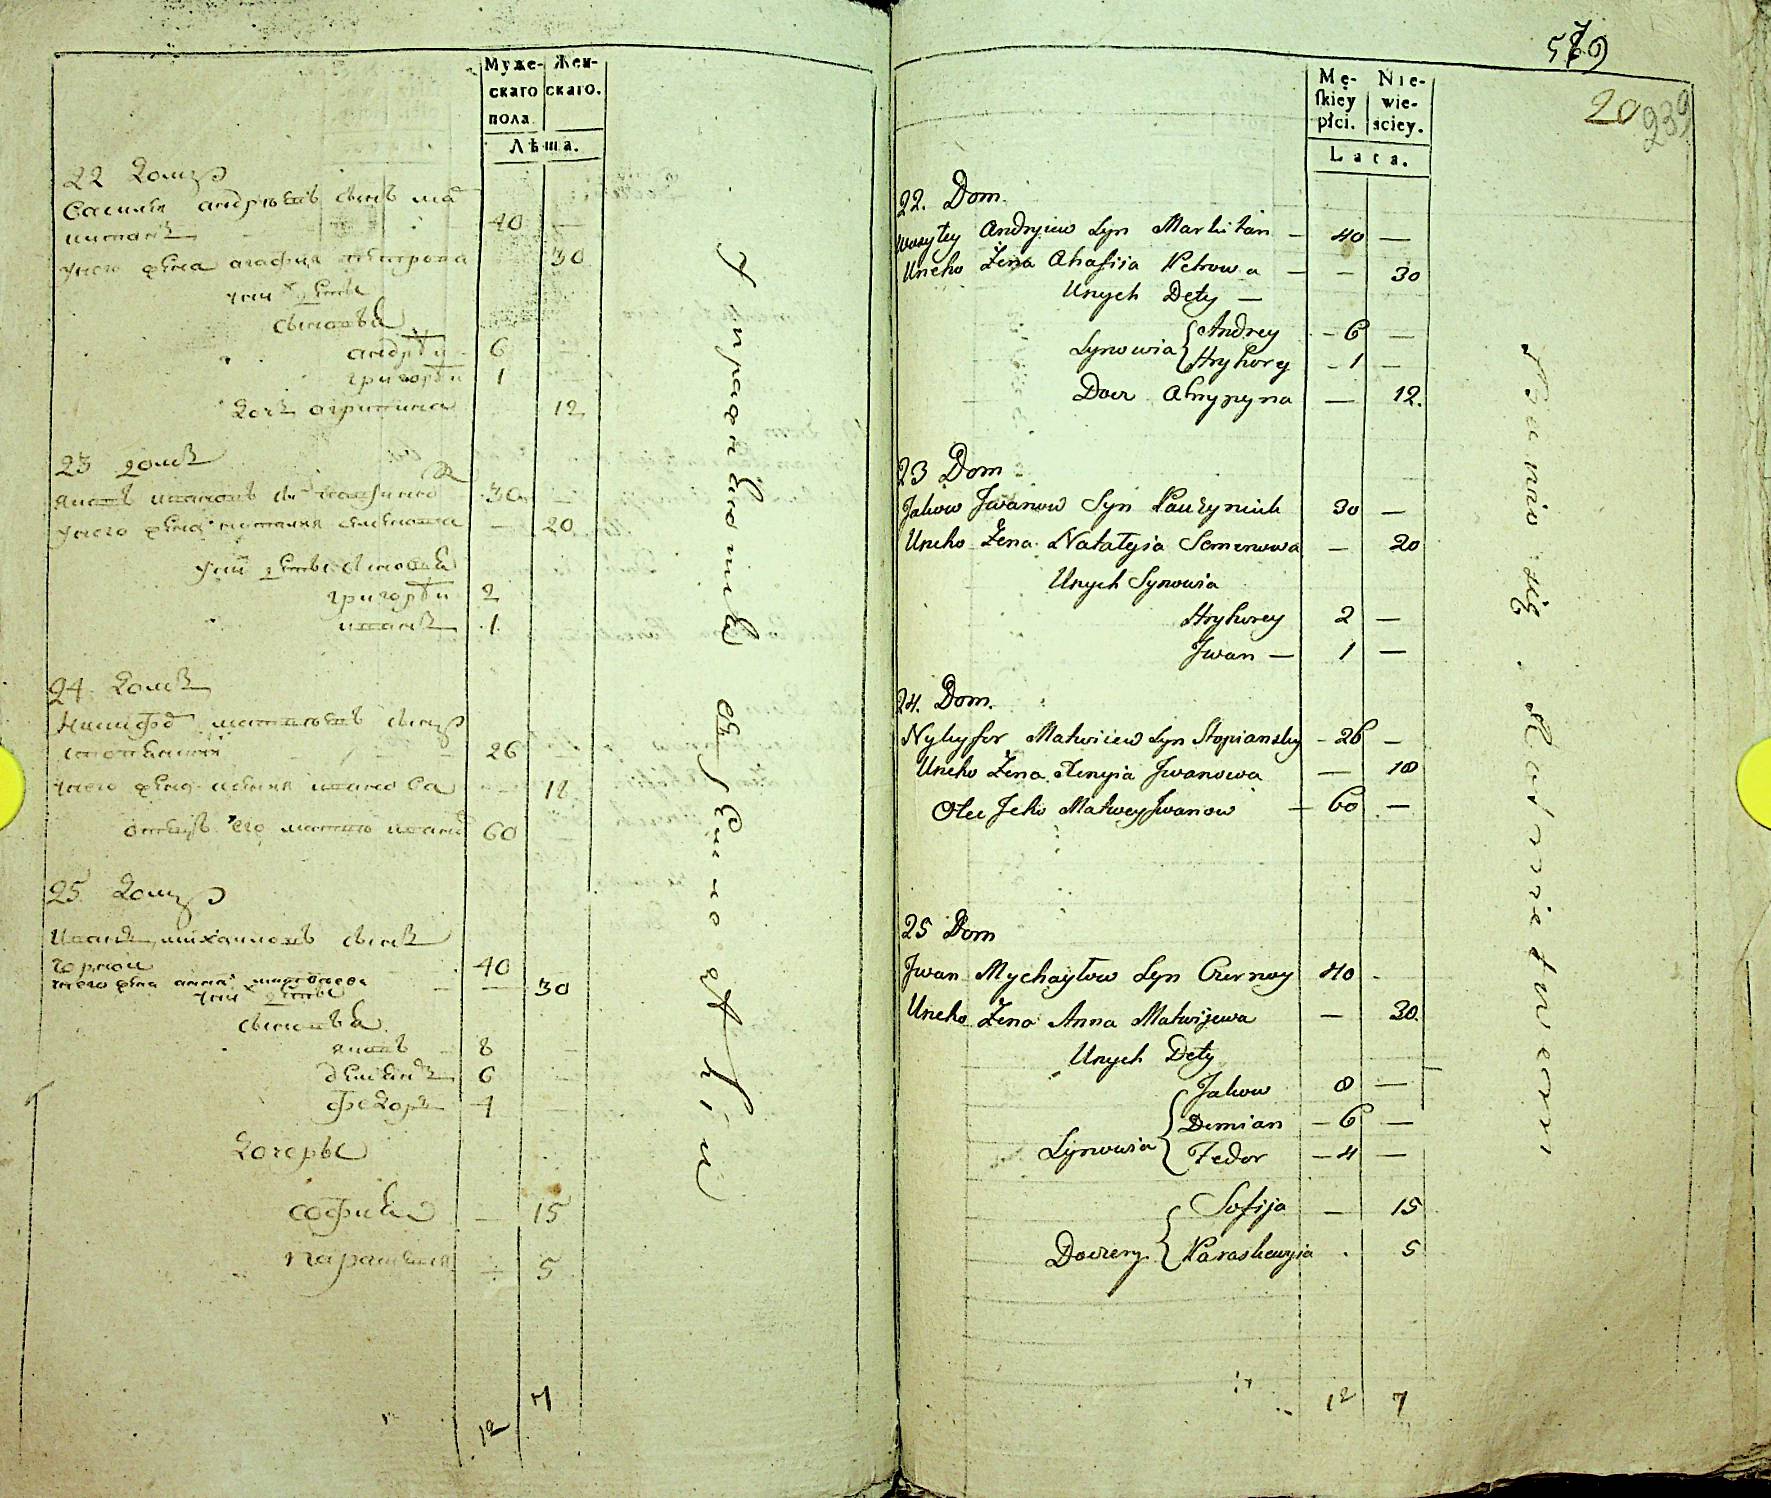 Муже- Жен-
скаго скаго.
пола.
Лѣта.
22 домъ
Василей андрѣевъ сынъ ма
китанъ 40 —
унего жена агафия петрова 30
уних дѣти
сыновья
андрѣй 6
григорѣй 1
дочь агрипина 12
23 домъ
яковъ ивановъ 30
унего жена наталия семенова — 20
уних дѣти сыновья
григорѣй 2
иванъ 1
24 домъ
матвѣевъ сынъ
26
унего жена ксения иванова 18
отецъ его матвѣй 60
25 домъ
Иванъ михаиловъ сынъ
чорной 40
унего жена анна матвѣева — 30
уних дѣти
сыновья
яковъ 8
демянъ 6
федоръ 4
дочеры
софия — 15
параскевия 5
12 7
упражняютца
579
20 239
Mę- Nie-
skiey wie-
płci. sciey.
Lata.
22. Dom.
Wasyley Andryiew Syn Markitan — 40 —
Uneho Żena Ahafiia Petrowa — — 30
Unych Dety —
Synowia { Andrey — 6 —
Hryhorey — 1 —
Docz Ahrypyna — 12.
23 Dom
Jakow Jwanow Syn 30 —
Uneho Żena Natalyia Semenowa — 20
Unych Synowia
Hryhorey 2 —
Jwan — 1 —
24. Dom.
Nykyfor Matwiiew Syn Stopiansky — 26 —
Uneho Żena Xenyia Jwanowa — 18
Otec Jeho Matwey Jwanow — 60 —
25 Dom
Jwan Mychayłow Syn Czornoy 40 -
Uneho Żena Anna Matwijewa — 30.
Unych Dety
Jakow 8 —
Synowia { Demian — 6 —
Fedor — 4 —
Sofija — 15
Doczery { Paraskewyia . 5
12 7
Bawio się Rolnictwem